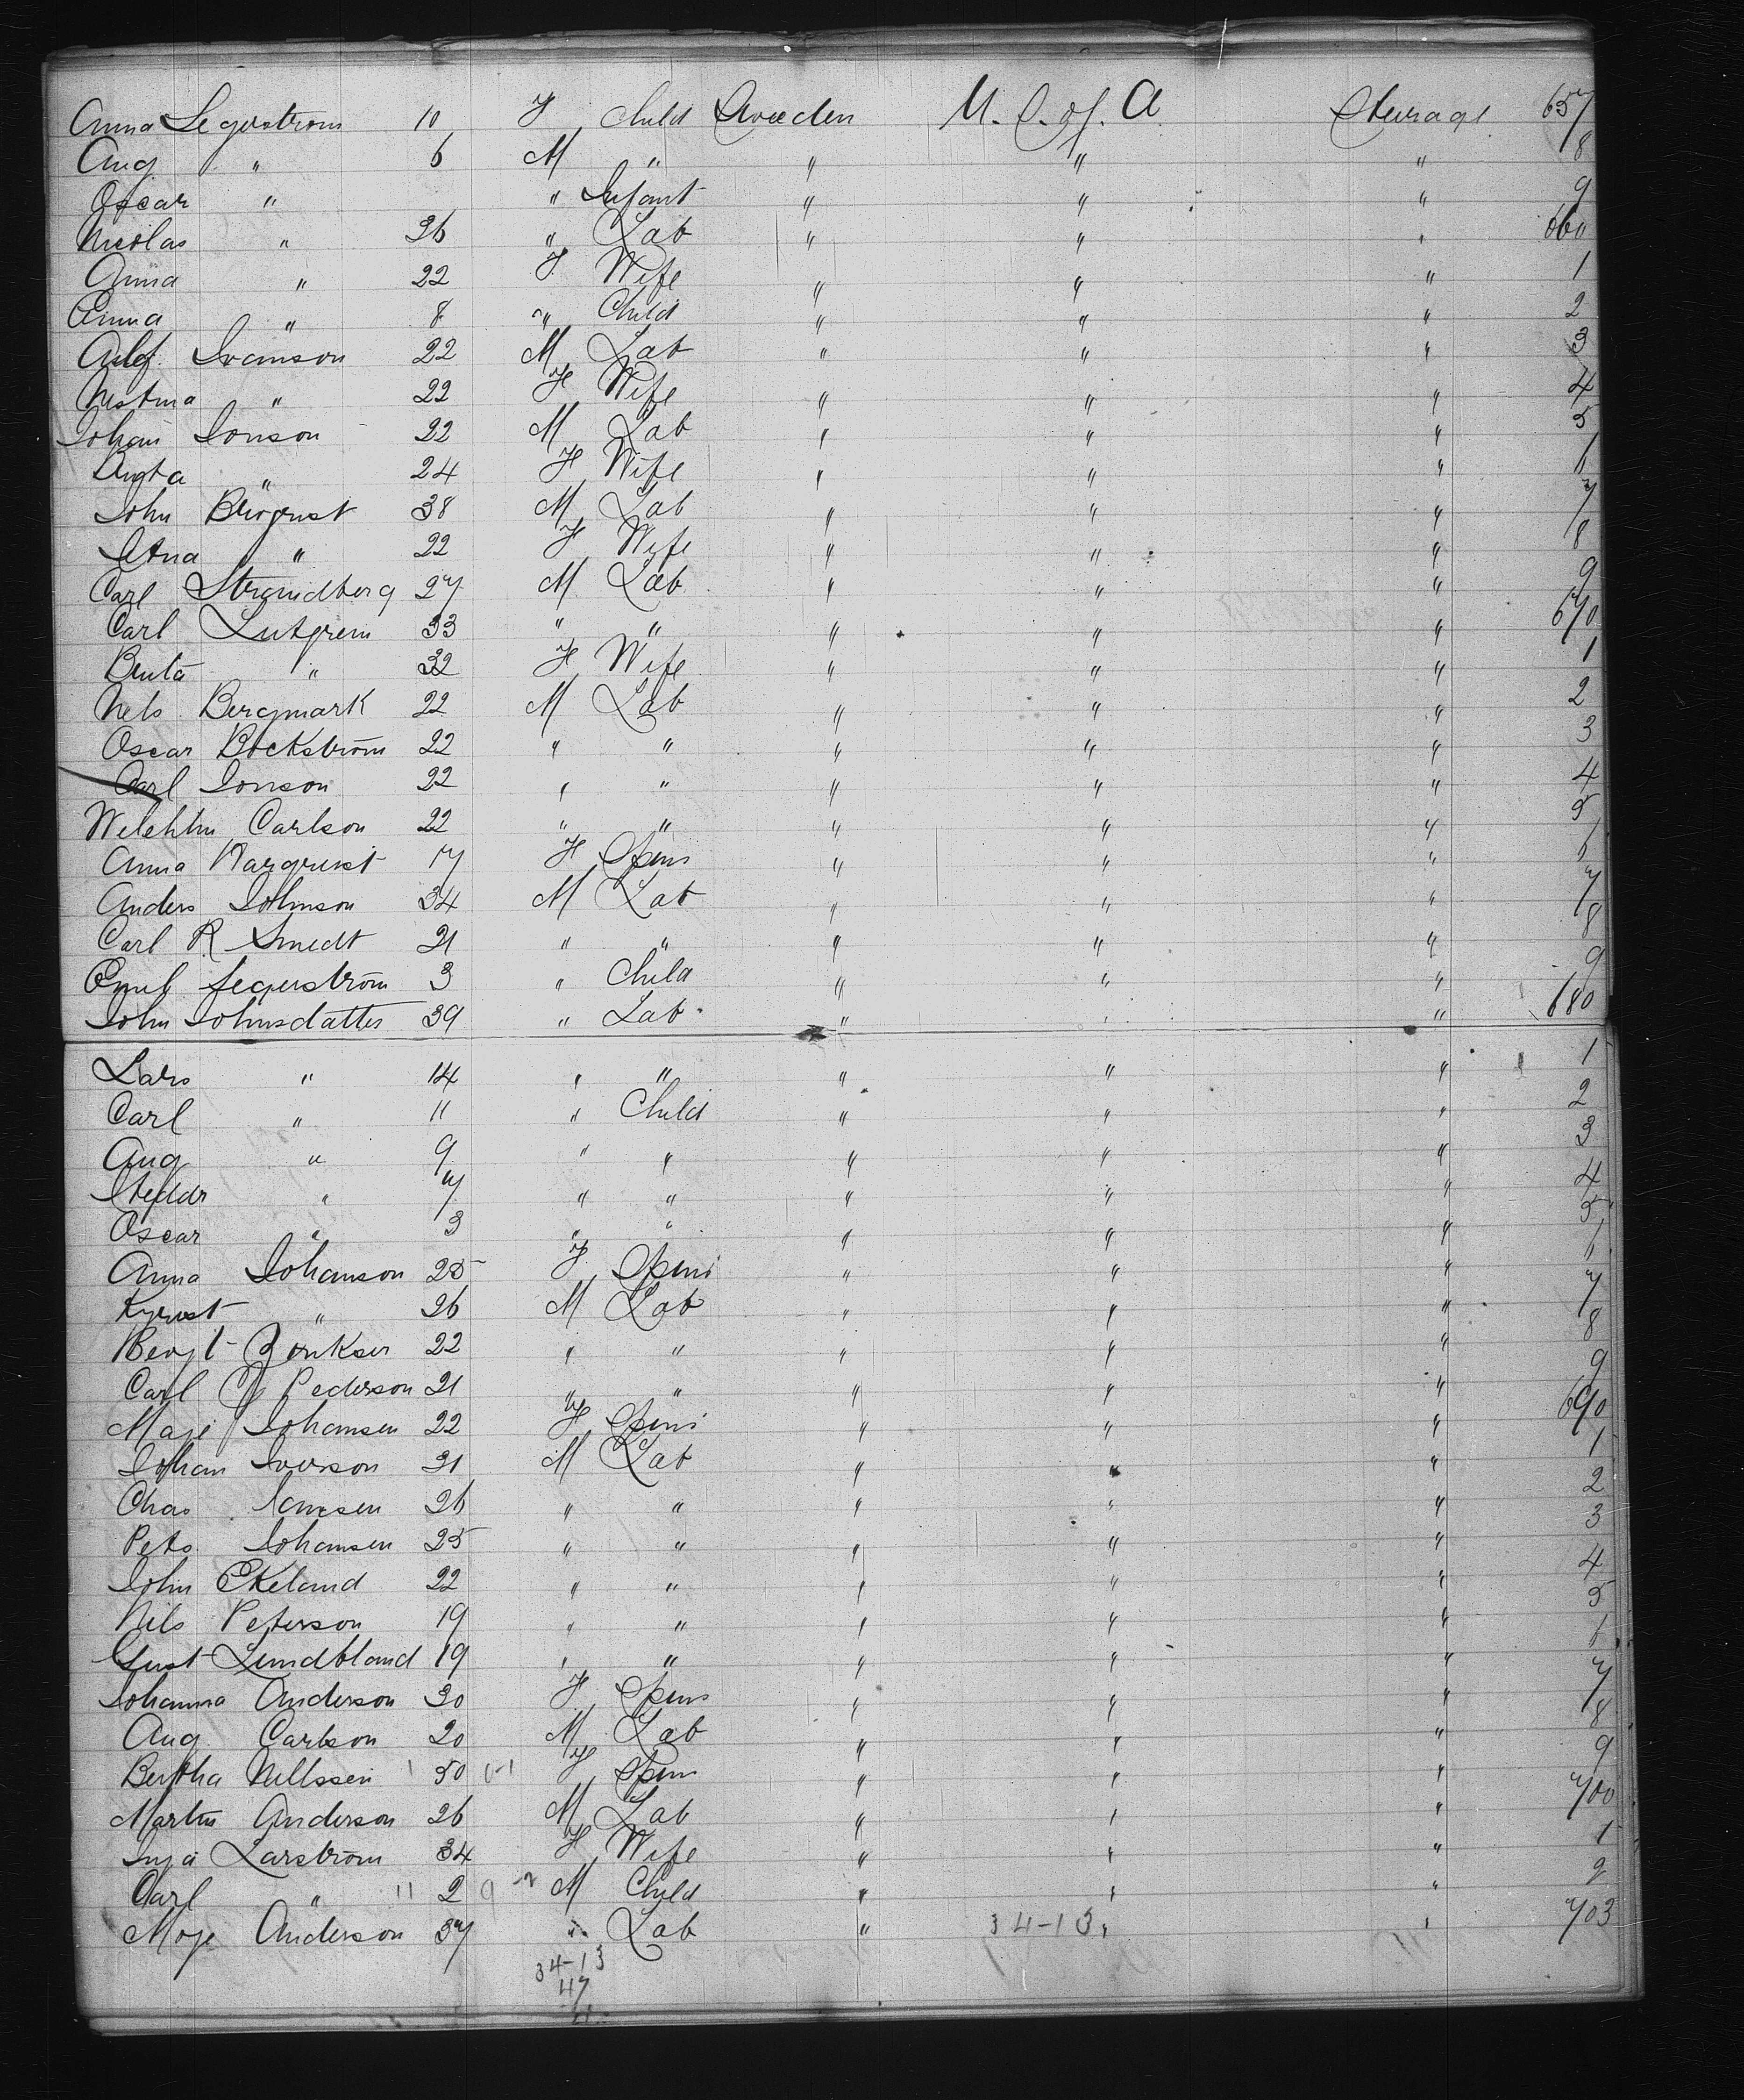 Anna Segerstrom 10 F Child Sweden U. S. of. A Steerage 657
Aug " 6 M " " " " 8
Oscar " " Infant " " " 9
Nicolas " 26 " Lab " " " 660
Anna " 22 F Wife " " " 1
Anna " 8 " Child " " " 2
Adof. Svanson 22 M Lab " " " 3
" 22 F Wife " " " 4
Johan Jonson 22 M Lab " " " 5
Augta " 24 F Wife " " " 6
John 38 M Lab " " " 7
" 22 F Wife " " " 8
Carl Strandberg 27 M Lab " " " 9
Carl 33 " " " " " 670
Benta " 32 F Wife " " " 1
Nels Bergmark 22 M Lab " " " 2
Oscar Bockström 22 " " " " " 3
Carl Jonson 22 " " " " " 4
Carlson 22 " " " " " 5
Anna 17 F Spins " " " 6
Anders Johnson 34 M Lab " " " 7
Carl R Smedt 21 " " " " " 8
Emil Segerström 3 " Child " " " 9
John Johnsdatter 39 " Lab " " " 680
Lars " 14 " " " " " 1
Carl " 11 " Child " " " 2
Aug " 9 " " " " " 3
" 7 " " " " " 4
Oscar " 3 " " " " " 5
Anna Johanson 25 F Spins " " " 6
" 26 M Lab " " " 7
Bengt 22 " " " " " 8
Carl Pederson 21 " " " " " 9
Maje Johansen 22 F Spins " " " 690
Johan Iverson 31 M Lab " " " 1
Chas Jansen 26 " " " " " 2
Petr Johansen 25 " " " " " 3
John Ekeland 22 " " " " " 4
Nils Peterson 19 " " " " " 5
Gust Lundbland 19 " " " " " 6
Johanna Anderson 30 F Spins " " " 7
Aug. Carlson 20 M Lab " " " 8
Bertha Nillssen 50 F Spins " " " 9
Martin Anderson 26 M Lab " " " 700
Inga Larström 34 F Wife " " " 1
Carl " 11 2 9 M Child " " " 2
Moje Anderson 37 " Lab " 34-13 " " 703
34-13
47